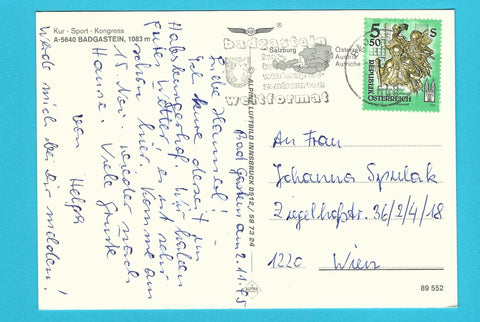 Kur · Sport · Kongress
A-5640 BADGASTEIN, 1083 m
Bad Gastein am 2.11.95
Liebe Hannerl!
Ich kure derzeit im
Habsburgerhof. Wir haben
gutes Wetter! es ist sehr
schön hier. Komme am
15. Nov. wieder nach
Hause. Viele Grüsse
von Helga
Werde mich bei Dir melden!
© ALPINE LUFTBILD INNSBRUCK 0512 / 58 73 24
badgastein
Salzburg
Österreich
Austria
Autriche
weltformat
5 50 S
REPUBLIK
ÖSTERREICH
An Frau
Johanna Spulak
Ziegelhofstr. 36/2/4/18
1220 Wien
89 552